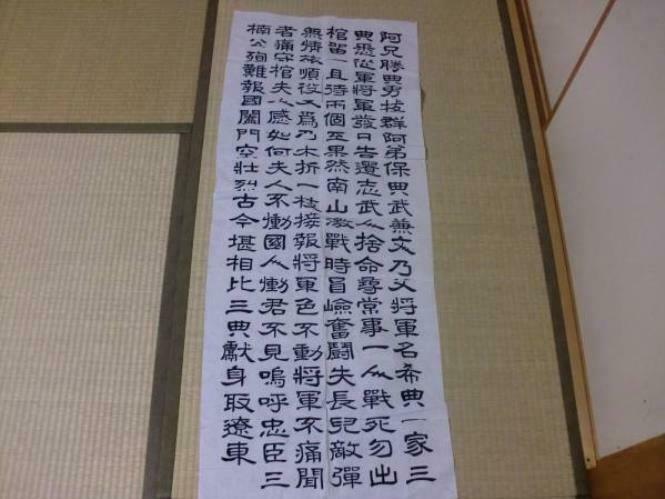 阿兄勝典勇拔群阿弟保典武兼文乃父將軍名希典一家三
典悉從軍將軍發日告還志武人捨命尋常事一人戰死勿出
棺留一且待兩個至果然南山激戰時負嶮奮鬪失長兒敵彈
無情旅順役又爲乃木折一枝接報將軍色不動將軍不痛聞
者痛守棺夫心感如何夫人不慟國人慟君不見嗚呼忠臣三
楠公殉難報國闔門空壯烈古今堪相比三典獻身取遼東